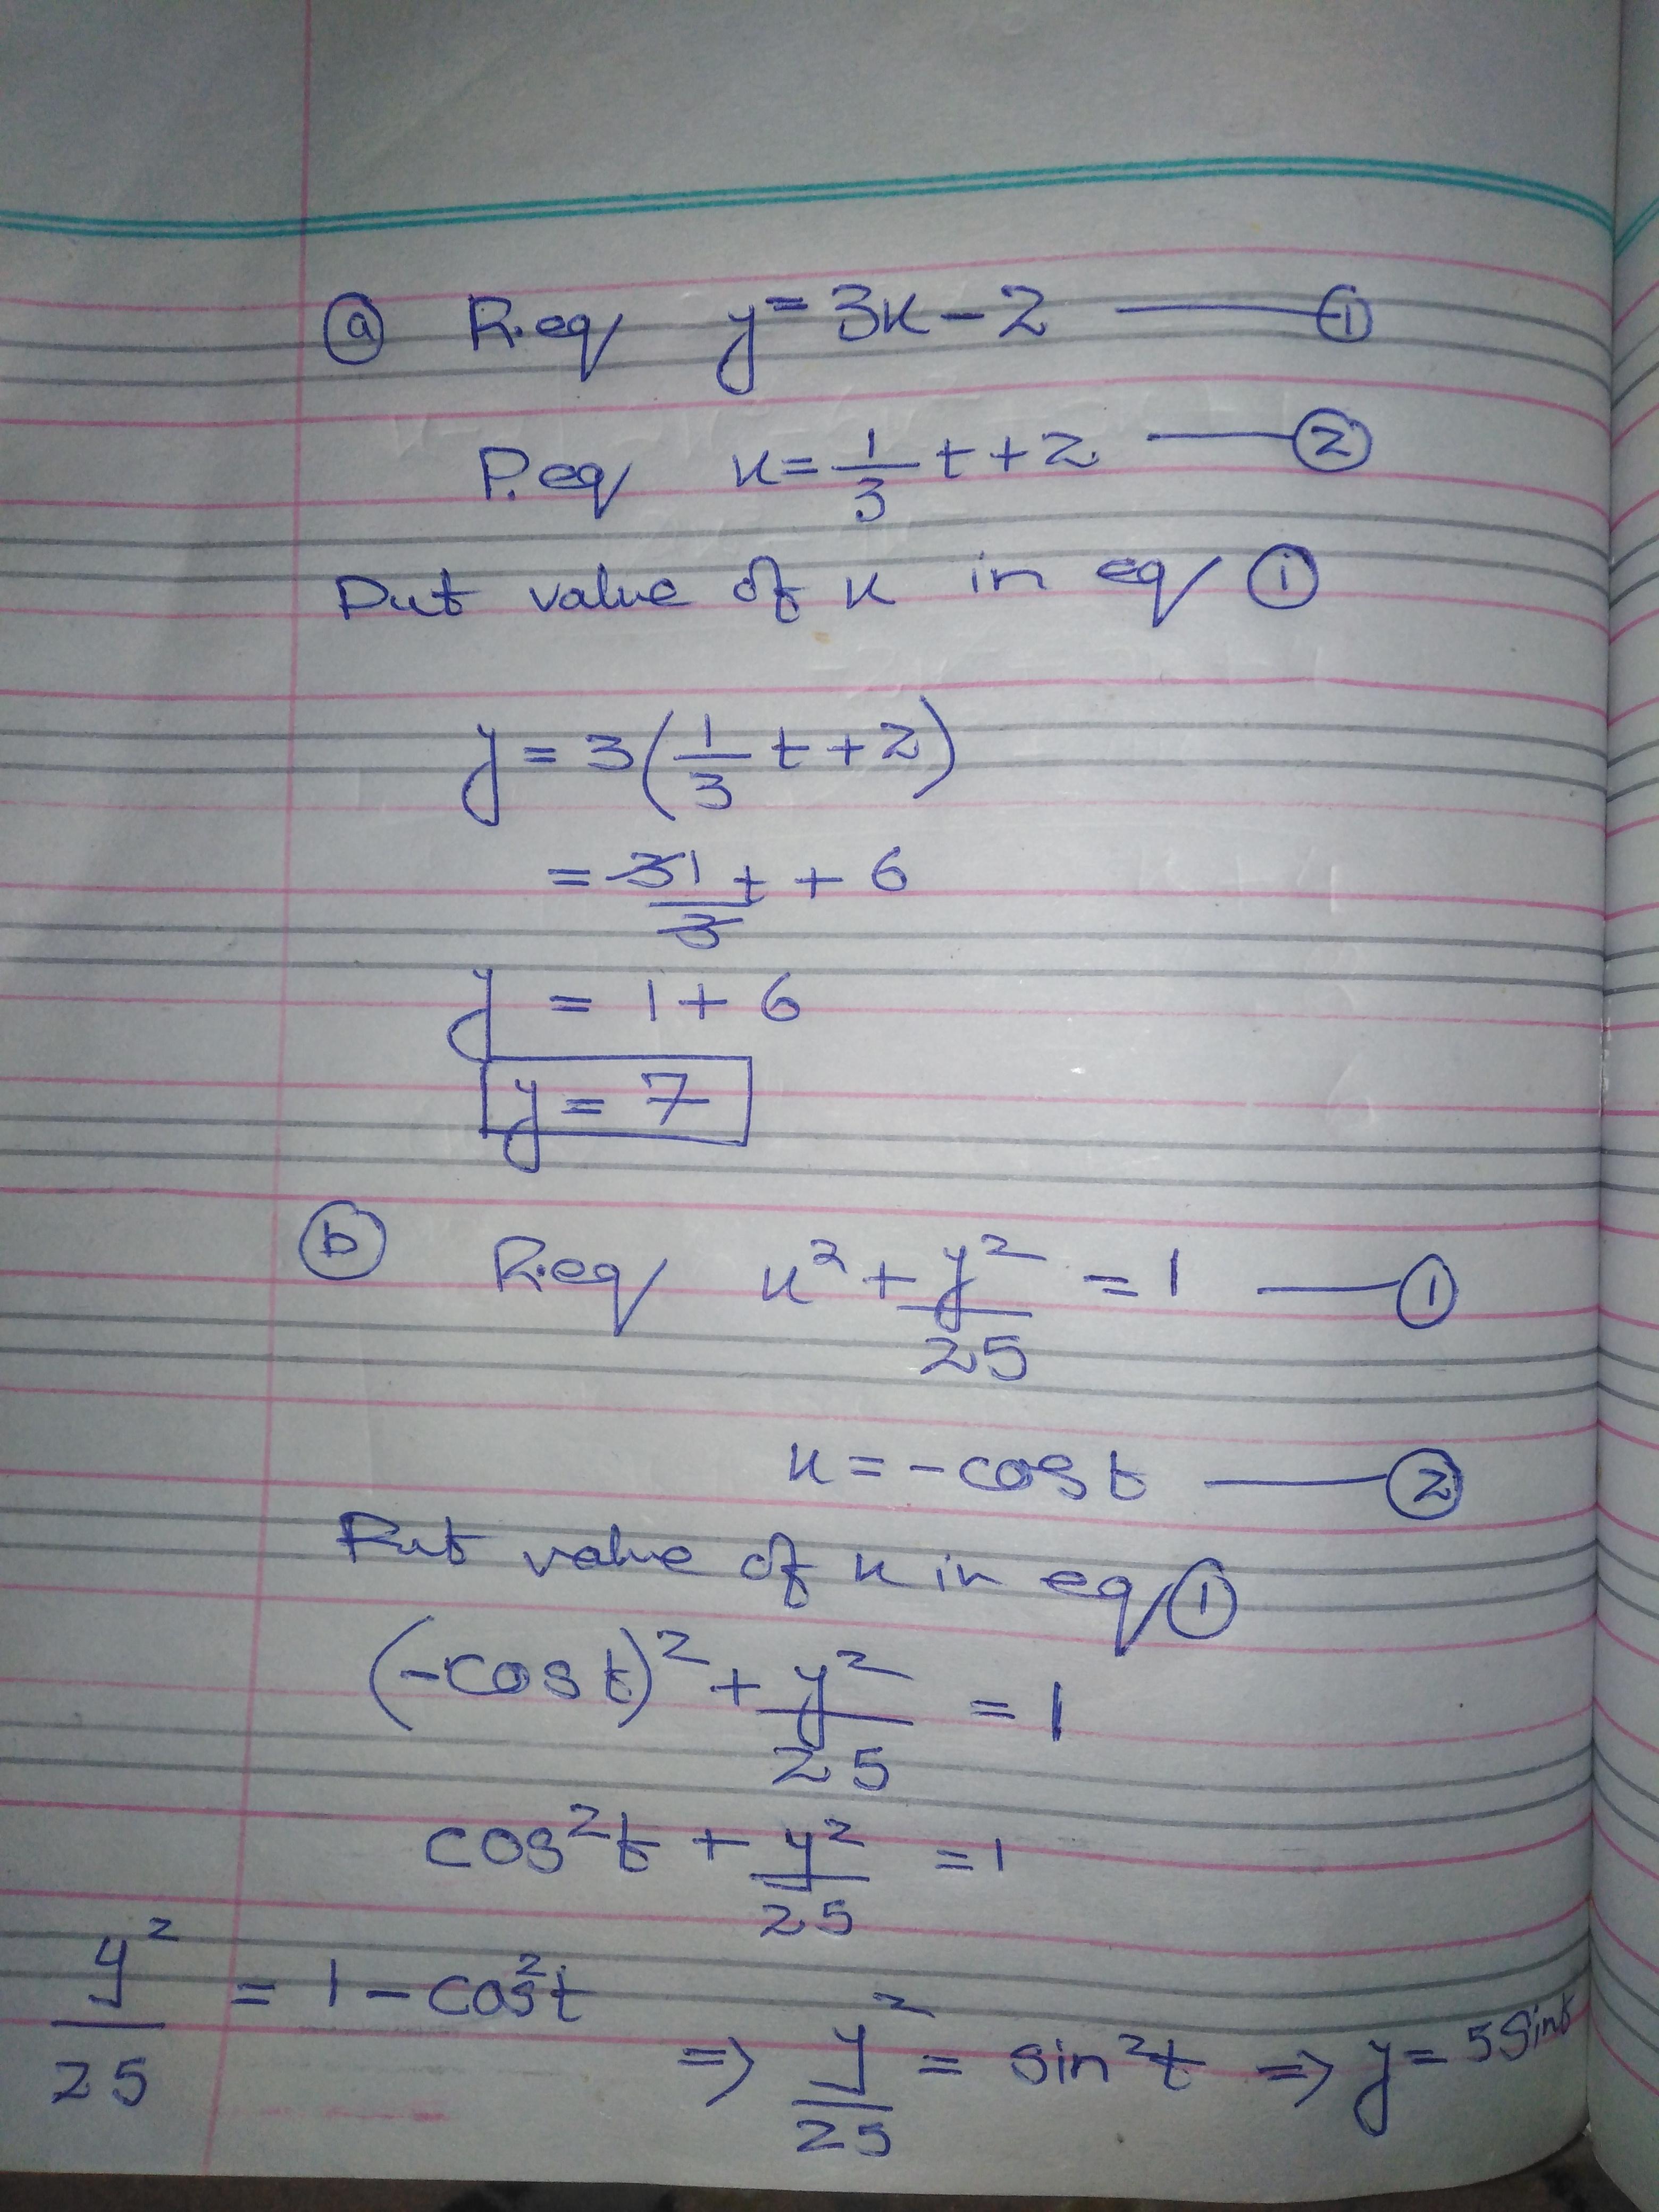 ⓐ R.eq y = 3x - 2 —— ①
P.eq x = 1/3 t + 2 —— ②
Put value of x in eq ①
y = 3(1/3 t + 2)
= 31/3 t + 6
y = 1 + 6
y = 7
ⓑ R.eq x² + y²/25 = 1 —— ①
x = -cos t —— ②
Put value of x in eq ①
(-cos t)² + y²/25 = 1
cos²t + y²/25 = 1
y²/25 = 1 - cos²t
⇒ y²/25 = sin²t ⇒ y = 5 Sint